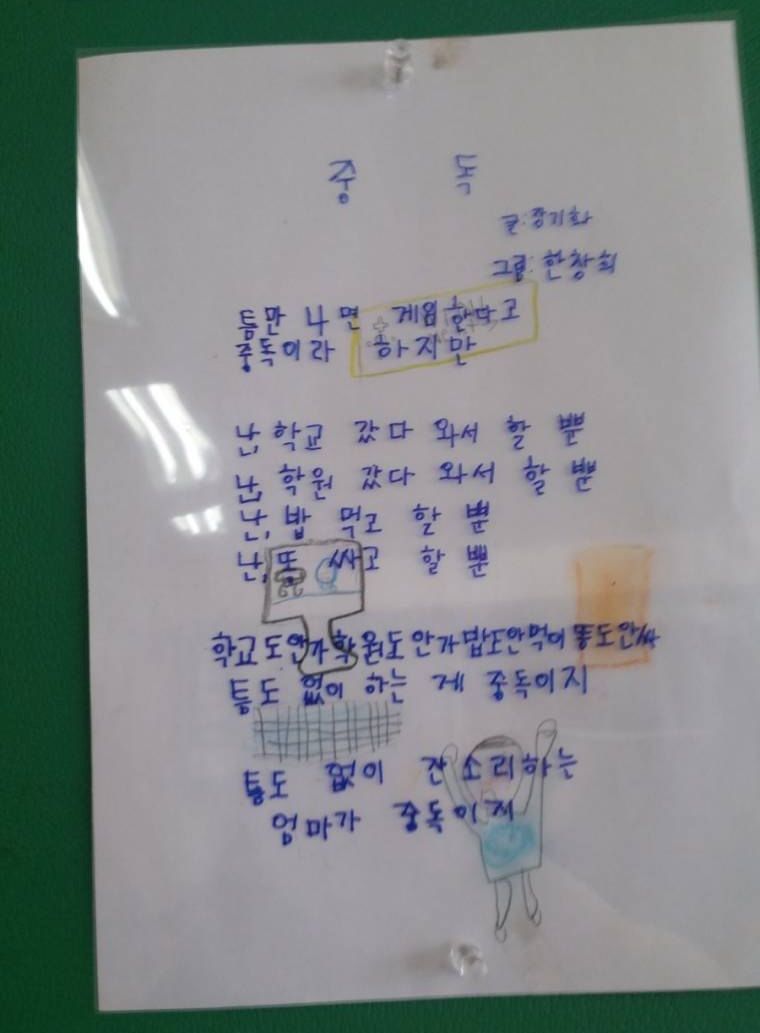 중 독
글:장기화
그림:한창희
틈만 나면 게임한다고
중독이라 하지만
난, 학교 갔다 와서 할 뿐
난, 학원 갔다 와서 할 뿐
난, 밥 먹고 할 뿐
난, 똥 싸고 할 뿐
학교도안가학원도안가밥도안먹어똥도안싸
틈도 없이 하는 게 중독이지
틈도 없이 잔소리하는
엄마가 중독이지